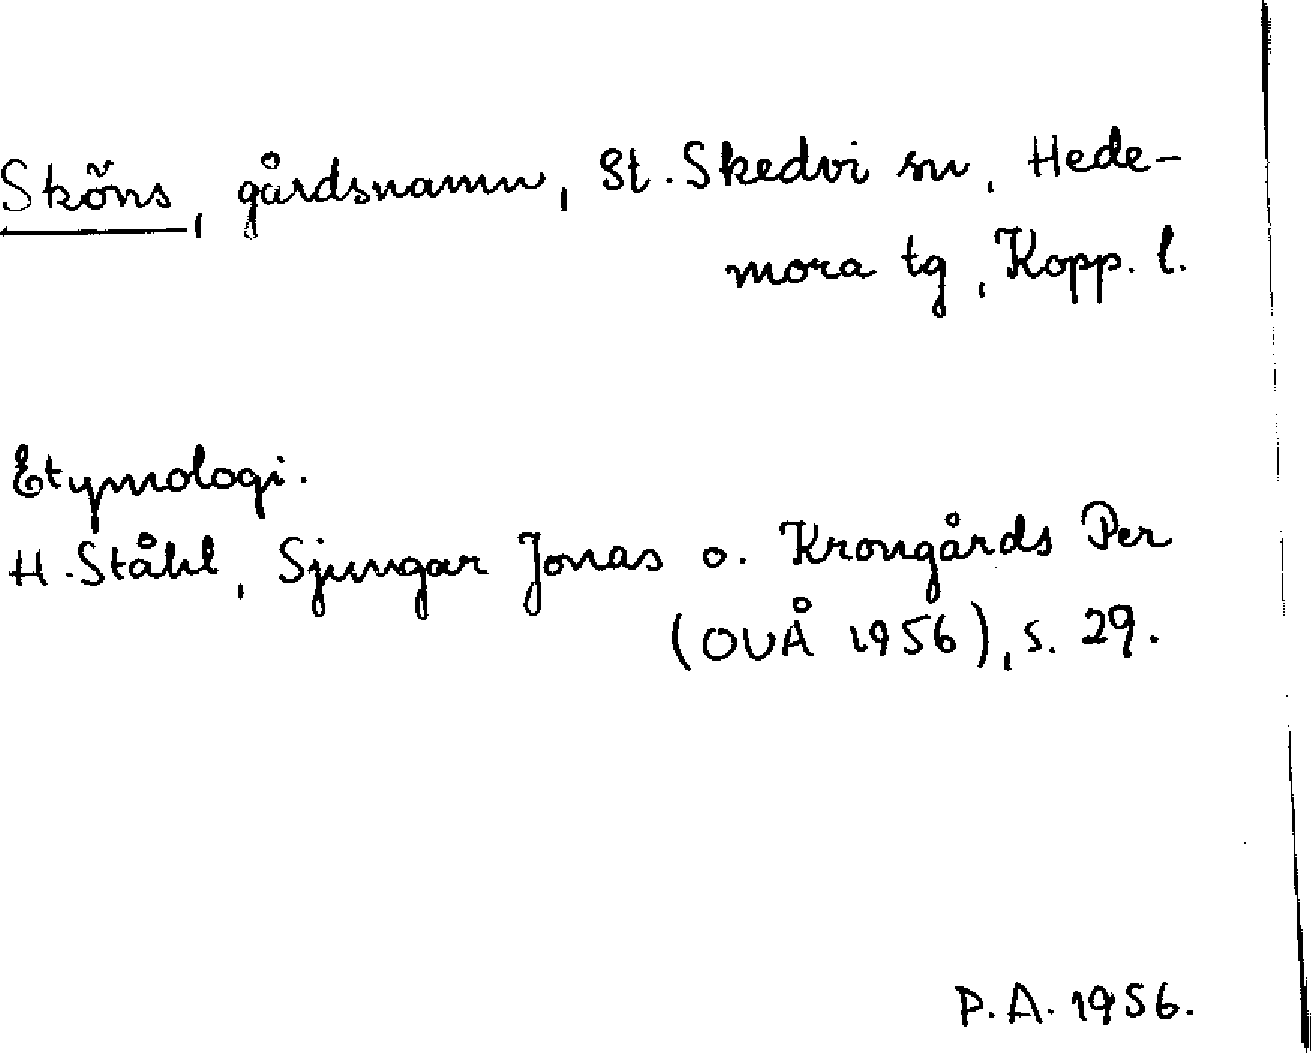 Sköns, gårdsnamn, St. Skedvi sn, Hede-
mora tg, Kopp. l.
Etymologi.
H. Ståhl, Sjungar Jonas o. Krongårds Per
(OUÅ 1956), s. 29.
P. A. 1956.